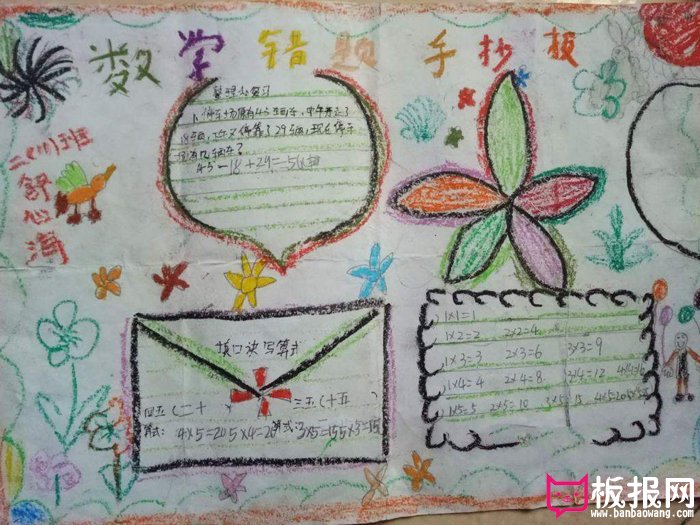 数学错题手抄报
二(11)班
整理与复习
1、停车场原有45辆车,中午开走了
18辆,下午又停靠了29辆,现在停车
45-18+29=56辆
填口诀写算式
四五(二十)
三五(十五)
算式:4×5=20 5×4=20
算式:3×5=15 5×3=15
1×1=1
1×2=2 2×2=4
1×3=3 2×3=6 3×3=9
1×4=4 2×4=8 3×4=12 4×4=16
1×5=5 2×5=10 3×5=15 4×5=20 5×5=25
板报网
www.banbaowang.com